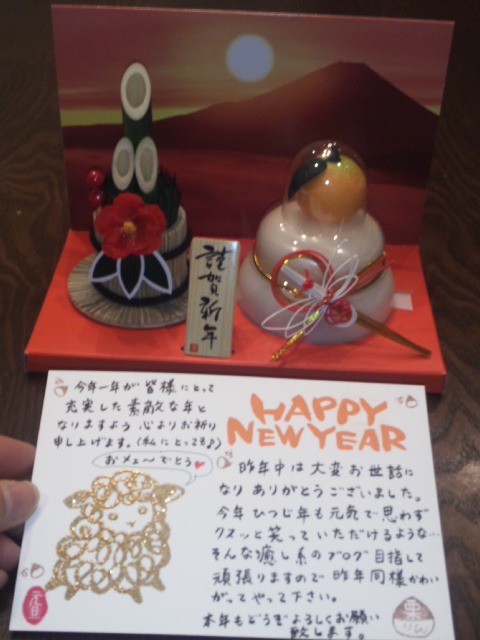 謹賀新年
今年一年が皆様にとって
充実した素敵な年と
なりますよう 心よりお祈り
申し上げます。(私にとっても♪)
おメェ〜でとう♥
HAPPY
NEW YEAR
昨年中は大変お世話に
なり ありがとうございました。
今年 ひつじ年も元気で思わず
クスッと笑っていただけるような…
そんな癒し系のブログ目指して
頑張りますので 昨年同様かわい
がってやって下さい。
本年もどうぞよろしくお願い
致します。
元旦